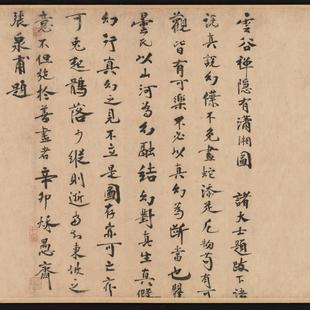 雲谷禪隱有瀟湘圖 諸大士題跋下語
說真說幻僕不免畫蛇添足凡物苟有可
觀皆有可樂不必以真幻為斷當也瞿
曇氏以山河為幻融結幻對真生真假
幻行真幻之見不立是圖存亦可亡亦
可兔起鶻落少縱則逝知東坡之
意不但施於善畫者辛卯愚齋
張泉甫題